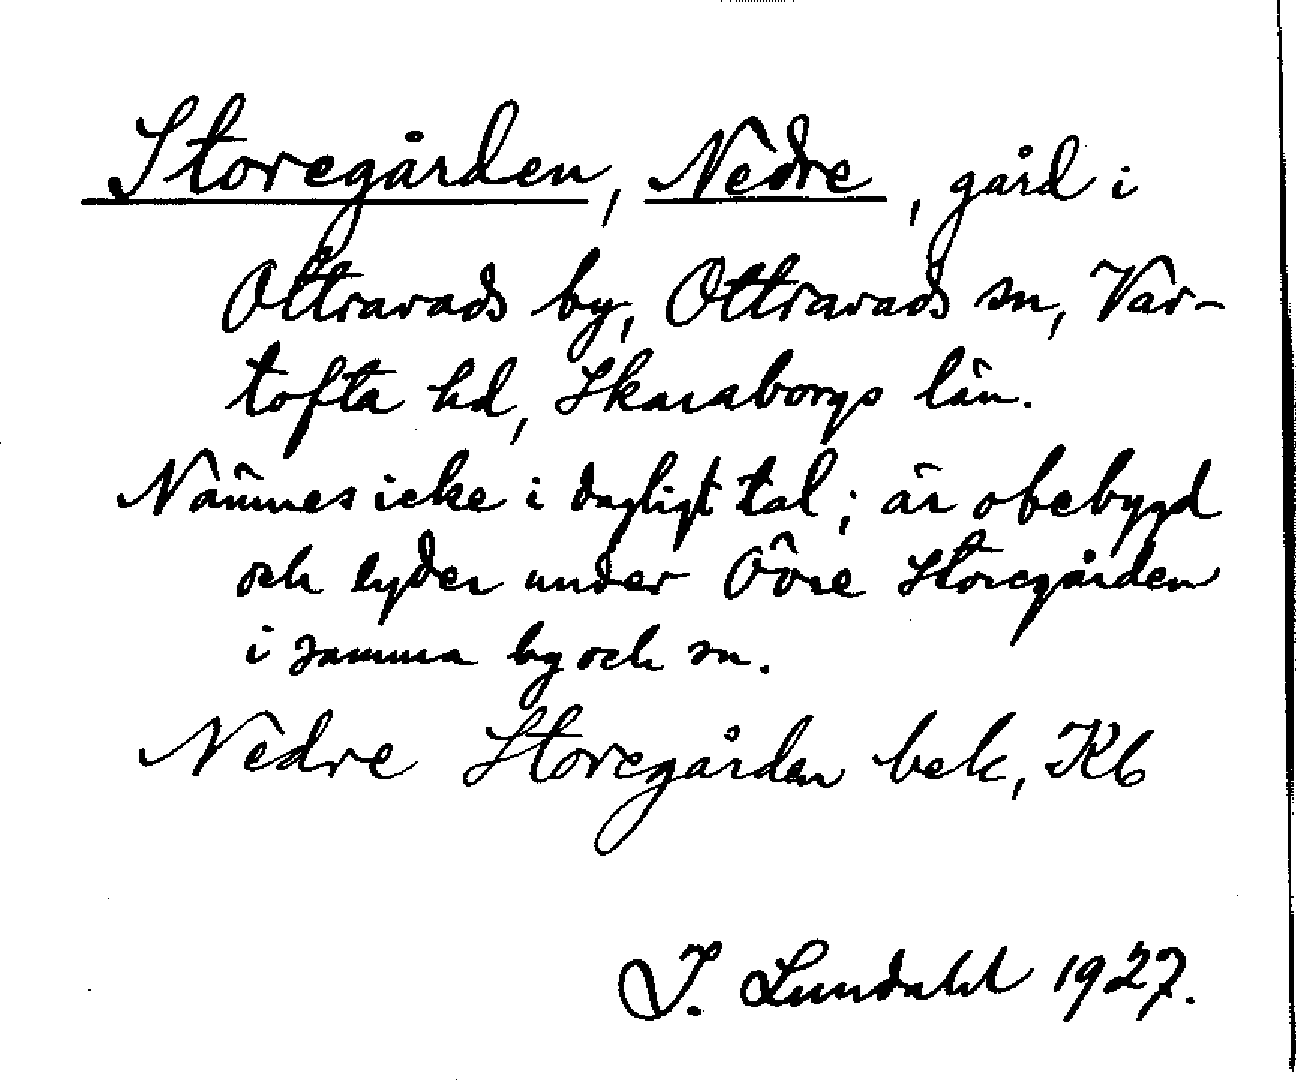 Storegården, Nedre, gård i
Ottravads by, Ottravads sn, Var-
tofta hd, Skaraborgs län.
Nämnes icke i dagligt tal; är obebygd
och lyder under Övre Storegården
i samma by och sn.
Nedre Storegården bek, Kb
I. Lundahl 1927.